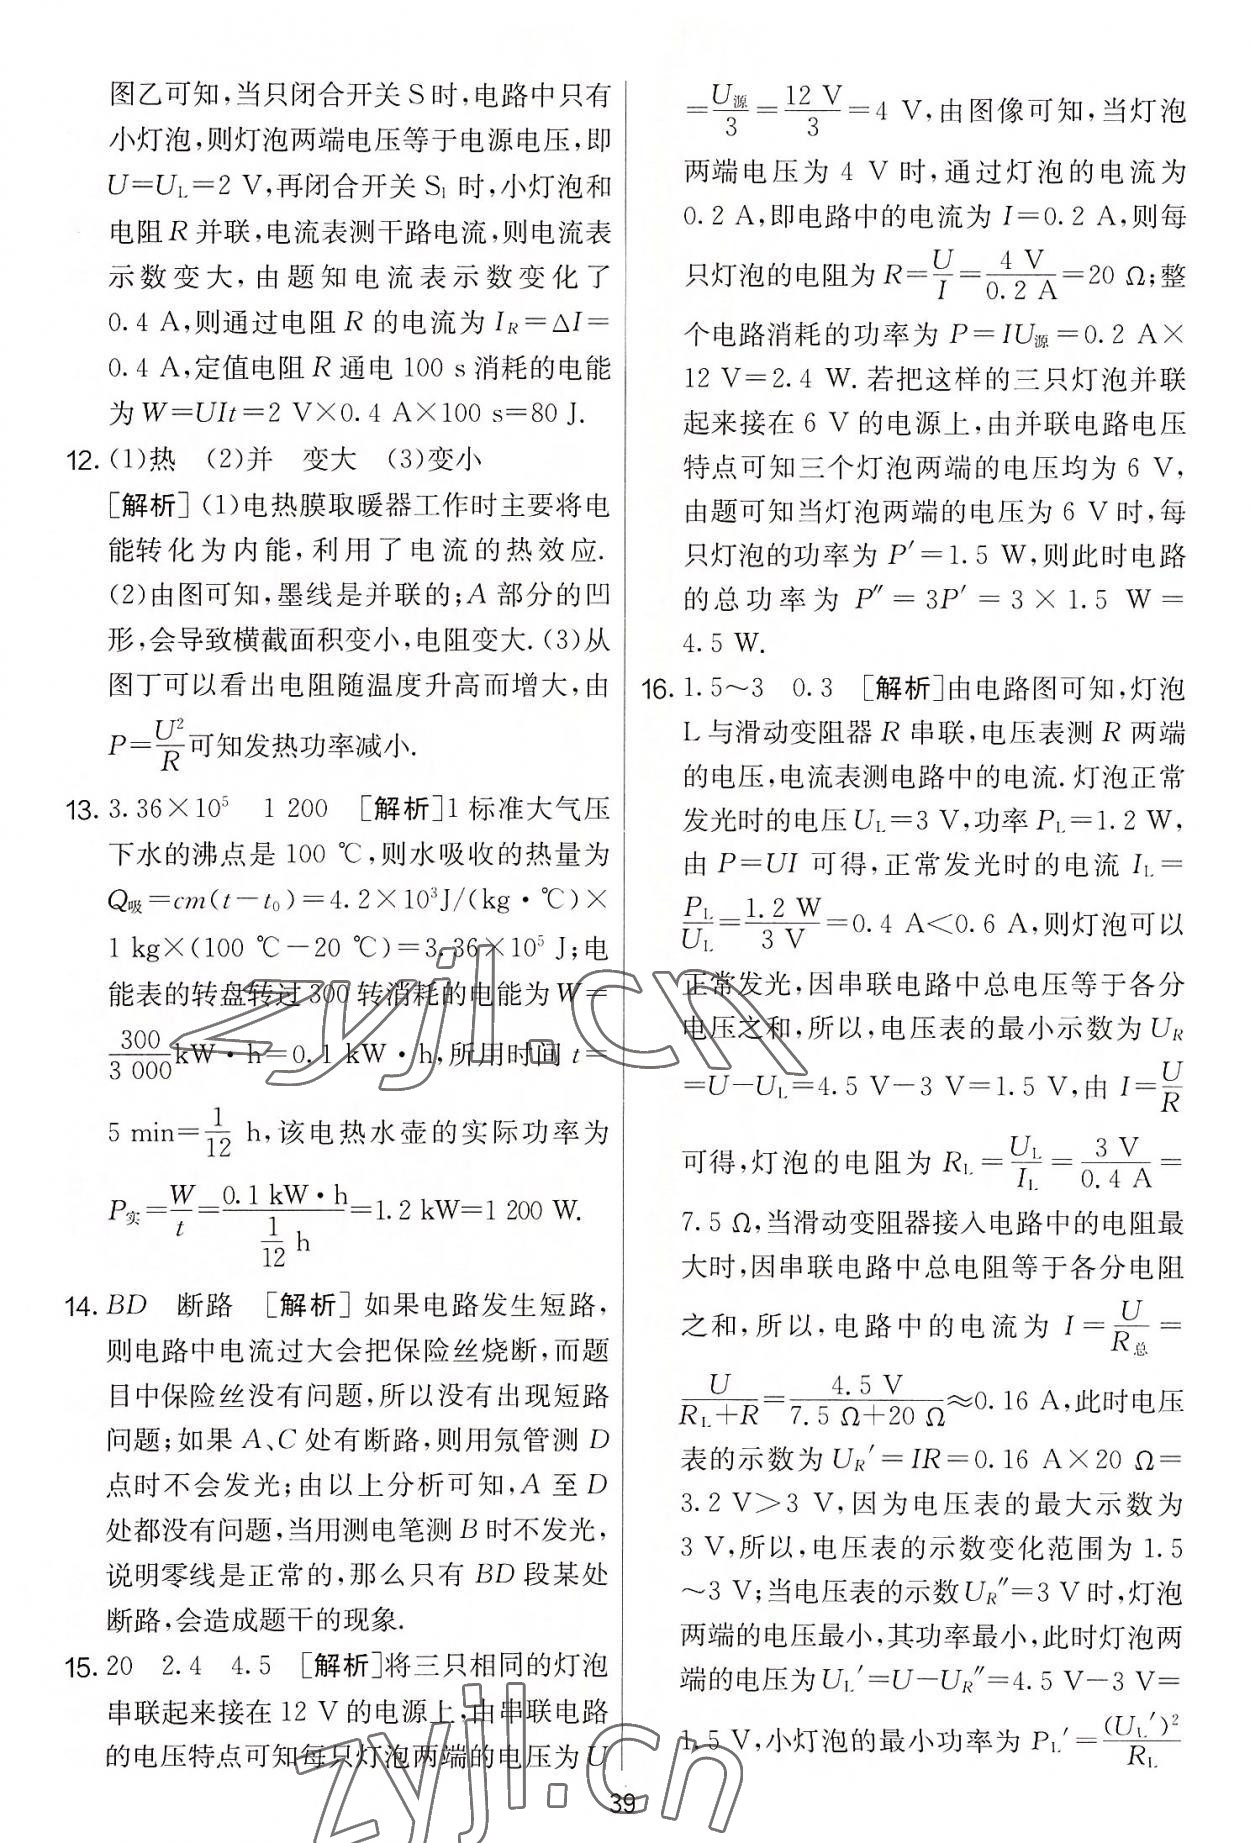 图乙可知,当只闭合开关 S 时,电路中只有
小灯泡,则灯泡两端电压等于电源电压,即
U=U_L=2 V,再闭合开关 S₁ 时,小灯泡和
电阻 R 并联,电流表测干路电流,则电流表
示数变大,由题知电流表示数变化了
0.4 A,则通过电阻 R 的电流为 I_R=ΔI=
0.4 A,定值电阻 R 通电 100 s 消耗的电能
为 W=UIt=2 V×0.4 A×100 s=80 J.
12. (1)热 (2)并 变大 (3)变小
[解析](1)电热膜取暖器工作时主要将电
能转化为内能,利用了电流的热效应.
(2)由图可知,墨线是并联的;A 部分的凹
形,会导致横截面积变小,电阻变大.(3)从
图丁可以看出电阻随温度升高而增大,由
P=U²/R 可知发热功率减小.
13. 3.36×10⁵ 1 200 [解析]1 标准大气压
下水的沸点是 100 ℃,则水吸收的热量为
Q吸=cm(t-t₀)=4.2×10³J/(kg·℃)×
1 kg×(100 ℃-20 ℃)=3.36×10⁵ J;电
能表的转盘转过 300 转消耗的电能为 W=
300/3 000 kW·h=0.1 kW·h,所用时间 t=
5 min=1/12 h,该电热水壶的实际功率为
P实=W/t=0.1 kW·h/(1/12 h)=1.2 kW=1 200 W.
14. BD 断路 [解析]如果电路发生短路,
则电路中电流过大会把保险丝烧断,而题
目中保险丝没有问题,所以没有出现短路
问题;如果 A、C 处有断路,则用氖管测 D
点时不会发光;由以上分析可知,A 至 D
处都没有问题,当用测电笔测 B 时不发光,
说明零线是正常的,那么只有 BD 段某处
断路,会造成题干的现象.
15. 20 2.4 4.5 [解析]将三只相同的灯泡
串联起来接在 12 V 的电源上,由串联电路
的电压特点可知每只灯泡两端的电压为 U
=U源/3=12 V/3=4 V,由图像可知,当灯泡
两端电压为 4 V 时,通过灯泡的电流为
0.2 A,即电路中的电流为 I=0.2 A,则每
只灯泡的电阻为 R=U/I=4 V/0.2 A=20 Ω;整
个电路消耗的功率为 P=IU源=0.2 A×
12 V=2.4 W.若把这样的三只灯泡并联
起来接在 6 V 的电源上,由并联电路电压
特点可知三个灯泡两端的电压均为 6 V,
由题可知当灯泡两端的电压为 6 V 时,每
只灯泡的功率为 P′=1.5 W,则此时电路
的总功率为 P″=3P′=3×1.5 W=
4.5 W.
16. 1.5~3 0.3 [解析]由电路图可知,灯泡
L 与滑动变阻器 R 串联,电压表测 R 两端
的电压,电流表测电路中的电流.灯泡正常
发光时的电压 U_L=3 V,功率 P_L=1.2 W,
由 P=UI 可得,正常发光时的电流 I_L=
P_L/U_L=1.2 W/3 V=0.4 A<0.6 A,则灯泡可以
正常发光,因串联电路中总电压等于各分
电压之和,所以,电压表的最小示数为 U_R
=U-U_L=4.5 V-3 V=1.5 V,由 I=U/R
可得,灯泡的电阻为 R_L=U_L/I_L=3 V/0.4 A=
7.5 Ω,当滑动变阻器接入电路中的电阻最
大时,因串联电路中总电阻等于各分电阻
之和,所以,电路中的电流为 I=U/R总=
U/(R_L+R)=4.5 V/(7.5 Ω+20 Ω)≈0.16 A,此时电压
表的示数为 U_R′=IR=0.16 A×20 Ω=
3.2 V>3 V,因为电压表的最大示数为
3 V,所以,电压表的示数变化范围为 1.5
~3 V;当电压表的示数 U_R″=3 V 时,灯泡
两端的电压最小,其功率最小,此时灯泡两
端的电压为 U_L′=U-U_R″=4.5 V-3 V=
1.5 V,小灯泡的最小功率为 P_L′=(U_L′)²/R_L
39
zyjl.cn
zyjl.cn